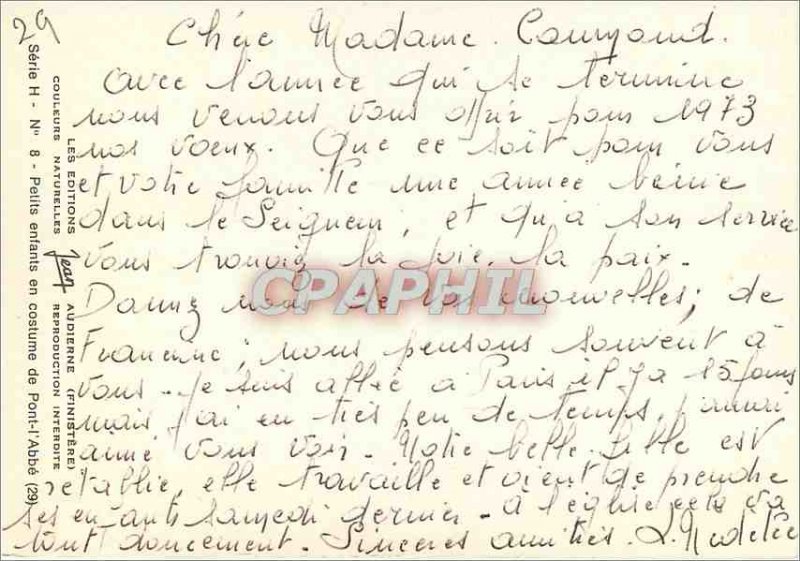 29
Chère Madame.
avec l'année qui se termine
nous venons vous offrir pour 1973
nos voeux. Que ce soit pour vous
et votre famille une année bénie
dans le Seigneur, et qu'à son service
vous trouviez la joie. la paix.
Donnez nous de vos nouvelles; de
Francine; nous pensons souvent à
vous. Je suis allée à Paris il y a 15 jours
mais j'ai eu très peu de temps. j'aurai
aimé vous voir. Notre belle fille est
rétablie, elle travaille et vient de prendre
ses enfants samedi dernier. à l'église cela va
tout doucement. Sincères amitiés.
CPAPHIL
LES EDITIONS Jean AUDIERNE (FINISTÈRE)
COULEURS NATURELLES REPRODUCTION INTERDITE
Série H - N° 8 - Petits enfants en costume de Pont-l'Abbé (29)